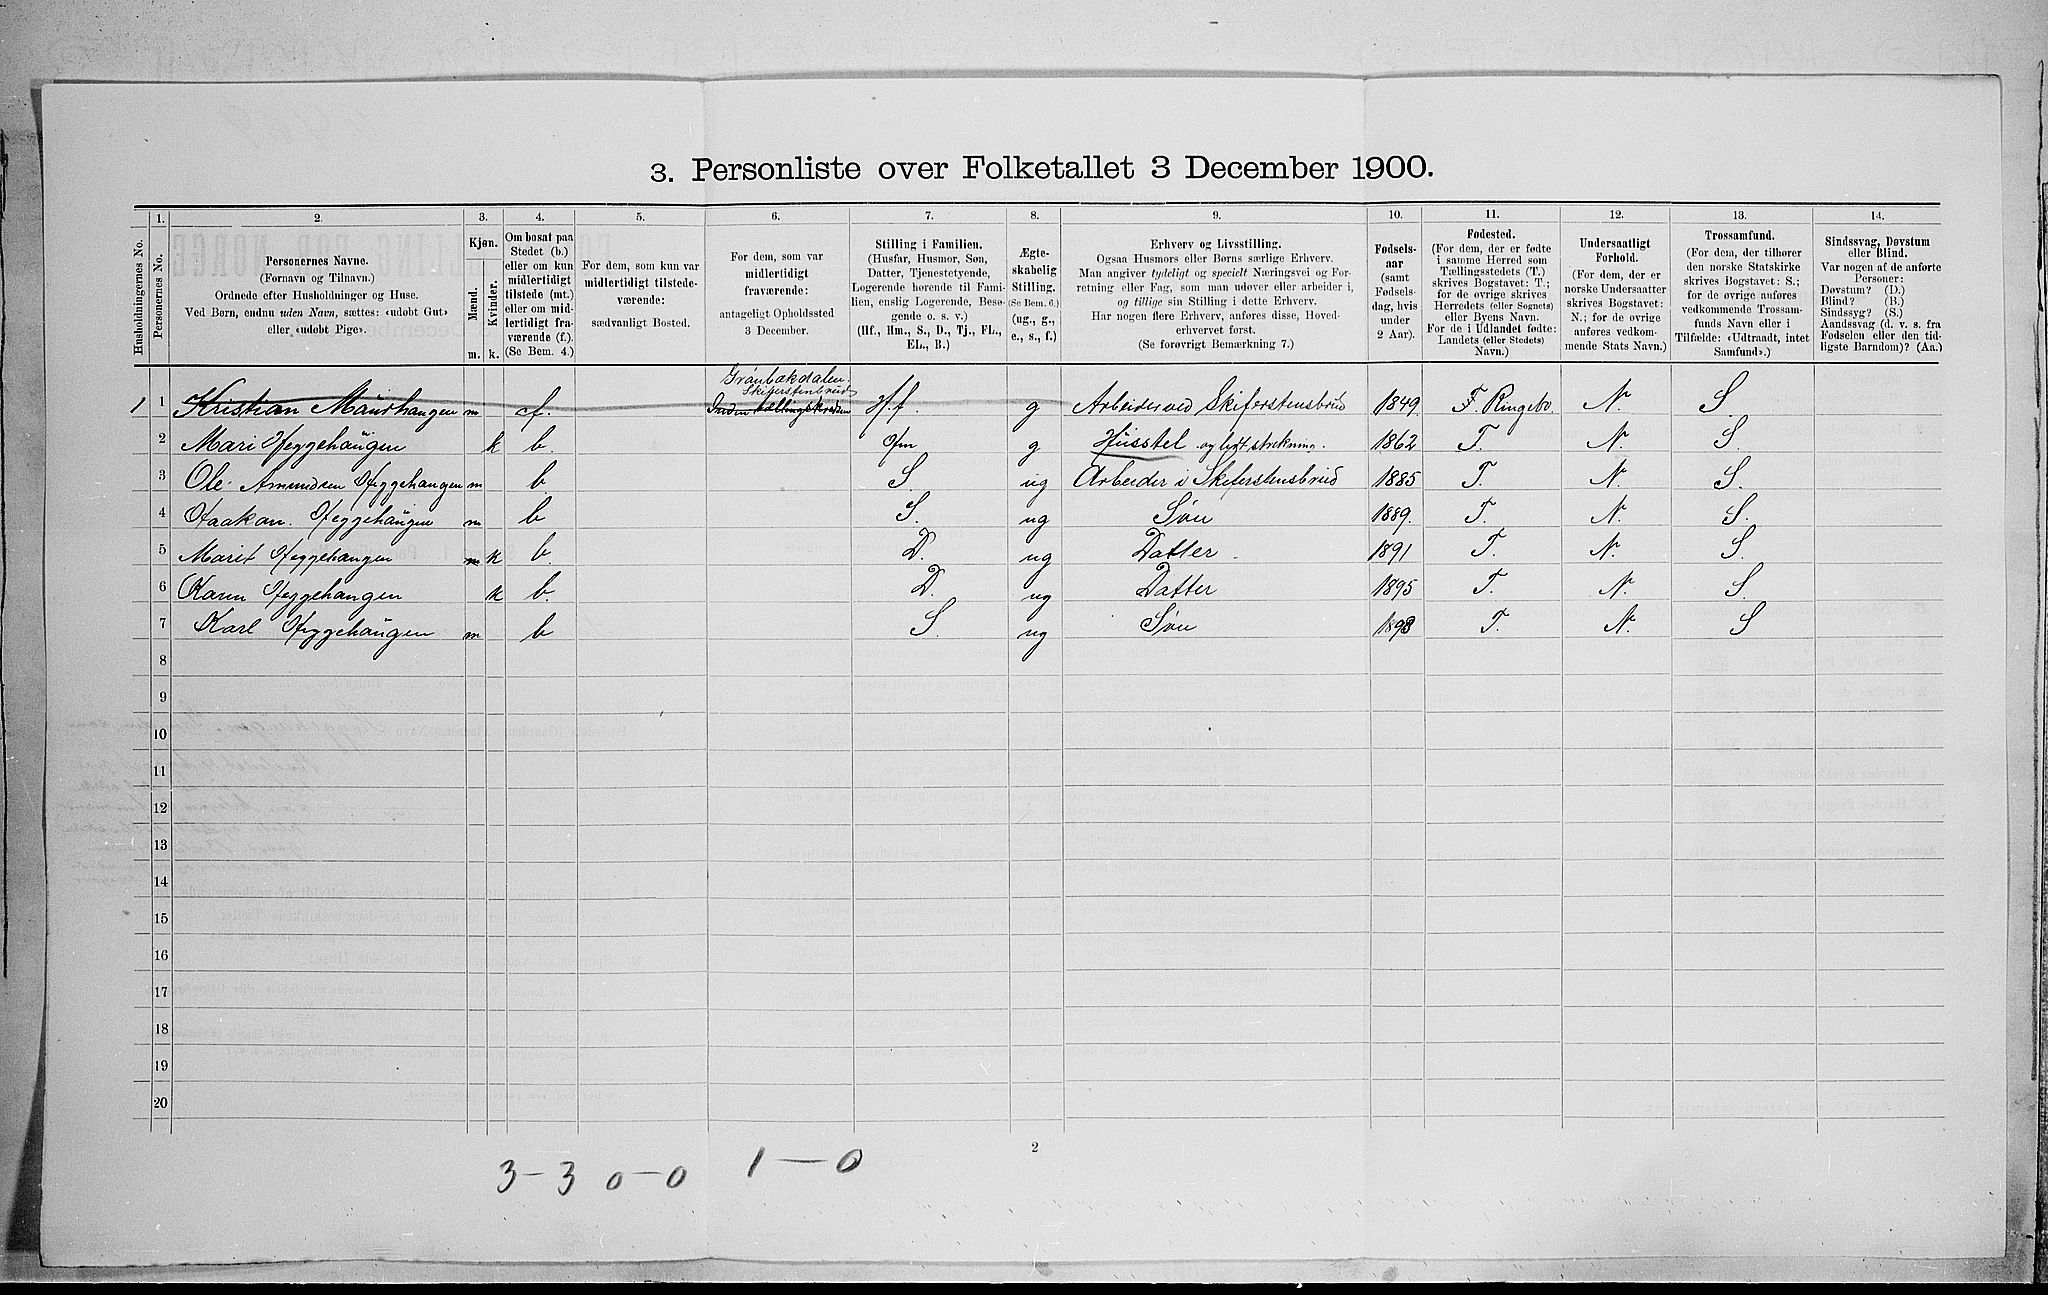 3. Personliste over Folketallet 3 December 1900.
1. 2. 3. 4. 5. 6. 7. 8. 9. 10. 11. 12. 13. 14.
Husholdningernes No.
Personernes No.
Personernes Navne.
(Fornavn og Tilnavn.)
Ordnede efter Husholdninger og Huse.
Ved Børn, endnu uden Navn, sættes: «udøbt Gut»
eller «udøbt Pige».
Kjøn.
Mænd.
Kvinder.
m. k.
Om bosat paa
Stedet (b.)
eller om kun
midlertidigt
tilstede (mt.)
eller om mid-
lertidigt fra-
værende (f.).
(Se Bem. 4.)
For dem, som kun var
midlertidigt tilstede-
værende:
sædvanligt Bosted.
For dem, som var
midlertidigt
fraværende:
antageligt Opholdssted
3 December.
Stilling i Familien.
(Husfar, Husmor, Søn,
Datter, Tjenestetyende,
Logerende hørende til Fami-
lien, enslig Logerende, Besø-
gende o. s. v.)
(Hf., Hm., S., D., Tj., FL.,
EL., B.)
Ægte-
skabelig
Stilling.
(Se Bem. 6.)
(ug., g.,
e., s., f.)
Erhverv og Livsstilling.
Ogsaa Husmors eller Børns særlige Erhverv.
Man angiver tydeligt og specielt Næringsvei og For-
retning eller Fag, som man udøver eller arbeider i,
og tillige sin Stilling i dette Erhverv.
Har nogen flere Erhverv, anføres disse, Hoved-
erhvervet først.
(Se forøvrigt Bemærkning 7.)
Fødsels-
aar
(samt
Fødsels-
dag, hvis
under
2 Aar).
Fødested.
(For dem, der er fødte
i samme Herred som
Tællingsstedets (T.)
skrives Bogstavet: T.;
for de øvrige skrives
Herredets (eller Sognets)
eller Byens Navn.
For de i Udlandet fødte:
Landets (eller Stedets)
Navn.)
Undersaatligt
Forhold.
(For dem, der er
norske Undersaatter
skrives Bogstavet:
N.; for de øvrige
anføres vedkom-
mende Stats Navn.)
Trossamfund.
(For dem, der tilhører
den norske Statskirke
skrives Bogstavet: S.;
for de øvrige anføres
vedkommende Trossam-
funds Navn eller i
Tilfælde: «Udtraadt, intet
Samfund».)
Sindssvag, Døvstum
eller Blind.
Var nogen af de anførte
Personer:
Døvstum? (D.)
Blind? (B.)
Sindssyg? (S.)
Aandssvag (d. v. s. fra
Fødselen eller den tid-
ligste Barndom)? (Aa.)
Grønbækdalen.
Skiferstensbrud
1 1 Kristian Maurhaugen m f. Inden tællingskredsen Hf. g Arbeider ved Skiferstensbrud 1849. T. Ringebo. N. S.
2 Mari Heggehaugen k b. Hm g Husstel og lidt strikning. 1862 T. N. S.
3 Ole Amundsen Heggehaugen m b. S. ug Arbeider i Skiferstensbrud 1885 T. N. S.
4 Haakan. Heggehaugen m b S. ug Søn 1889. T. N. S.
5 Marit Heggehaugen m k b. D. ug Datter 1891 T. N. S.
6 Karen Heggehaugen k b. D. ug Datter 1895 T. N. S.
7 Karl Heggehaugen m b S. ug Søn 1898 T. N. S
8
9
10
11
12
13
14
15
16
17
18
19
20
2
3-3 0-0 1-0